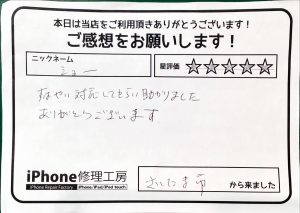 本日は当店をご利用頂きありがとうございます！
ご感想をお願いします！
ニックネーム
ミュー
星評価 ☆☆☆☆☆
すばやい対応してもらい助かりました
ありがとうございます
iPhone修理工房
iPhone Repair Factory iPhone/iPad/iPod touch
さいたま市 から来ました